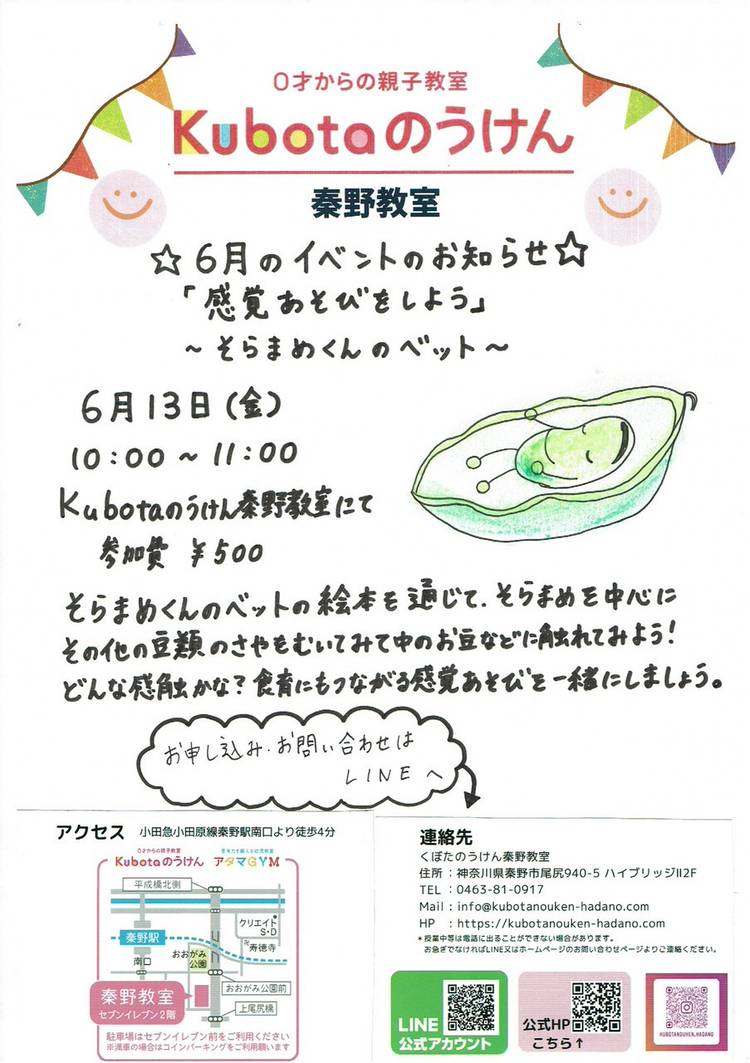 0才からの親子教室
Kubotaのうけん
秦野教室
☆6月のイベントのお知らせ☆
「感覚あそびをしよう」
～そらまめくんのベット～
6月13日(金)
10:00～11:00
Kubotaのうけん秦野教室にて
参加費 ¥500
そらまめくんのベットの絵本を通じて、そらまめを中心に
その他の豆類のさやもむいてみて中のお豆などに触れてみよう!
どんな感触かな?食育にもつながる感覚あそびを一緒にしましょう。
お申し込み・お問い合わせは
LINEへ
アクセス 小田急小田原線秦野駅南口より徒歩4分
0才からの親子教室
Kubotaのうけん アタマGYM
平成橋北側
クリエイトS・D
秦野駅
卍寿徳寺
南口
おおがみ公園
おおがみ公園前
秦野教室
セブンイレブン2階
上尾尻橋
駐車場はセブンイレブン前をご利用ください
※満車の場合はコインパーキングをご利用願います
連絡先
くぼたのうけん秦野教室
住所：神奈川県秦野市尾尻940-5 ハイブリッジII2F
TEL：0463-81-0917
Mail：info@kubotanouken-hadano.com
HP ：https://kubotanouken-hadano.com
*授業中等は電話に出ることができない場合があります。
お急ぎでなければLINE又はホームページのお問い合わせページよりご連絡ください。
LINE
公式アカウント
公式HP
こちら↑
KUBOTANOUKEN.HADANO